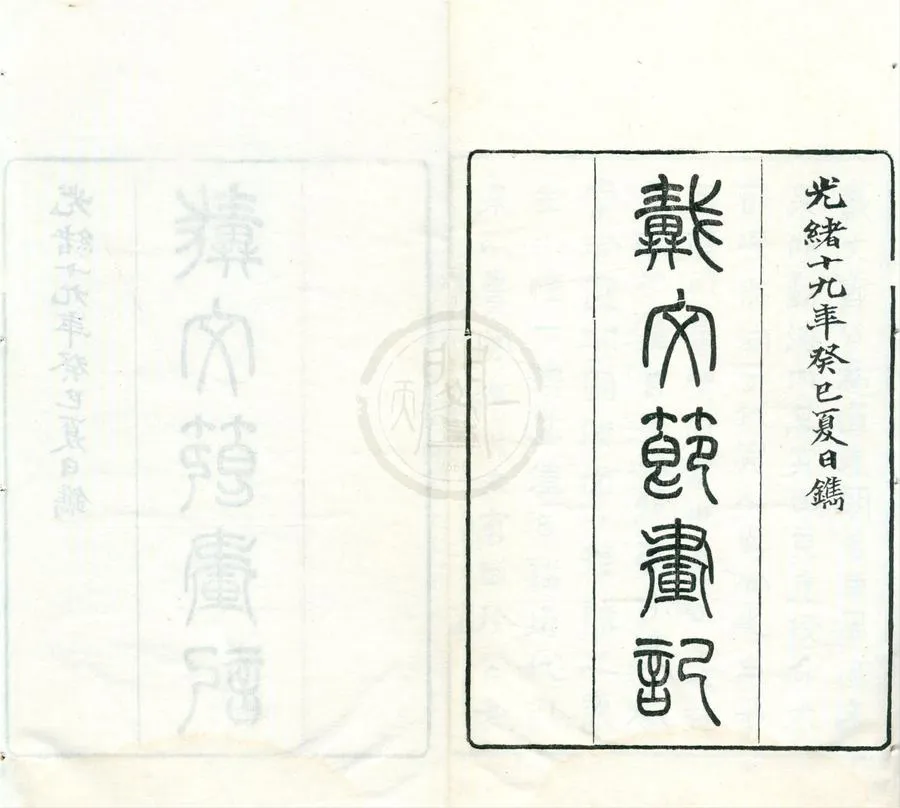 光緒十九年癸巳夏日鐫
戴文節畫記